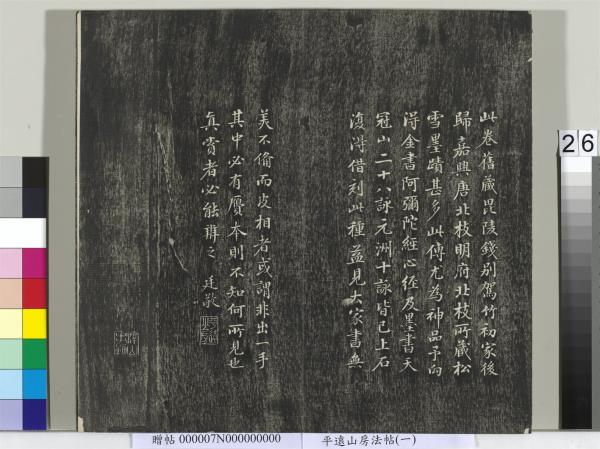 此卷舊藏毘陵錢別駕竹初家後
歸嘉興唐北枝明府北枝所藏松
雪墨蹟甚多此傳尤為神品予向
得金書阿彌陀經心經及墨書天
冠山二十八詠元洲十詠皆已上石
復得借刻此種益見大家書無
美不備而皮相者或謂非出一手
其中必有贋本則不知何所見也
真賞者必能辨之 廷敬
26
贈帖 000007N000000000 平遠山房法帖(一)